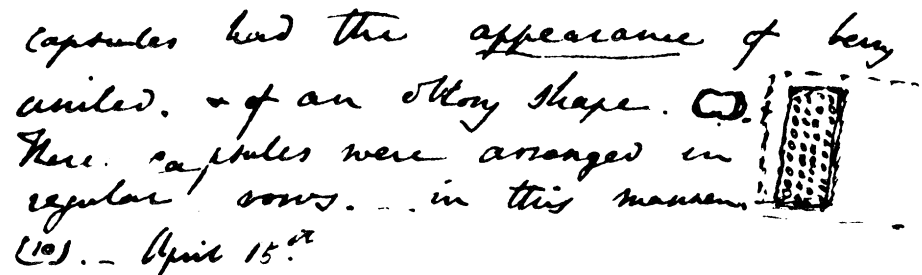 capsules had the appearance of being
united. & of an oblong shape.
These capsules were arranged in
regular rows. - . in this manner.
(10). - April 15.st